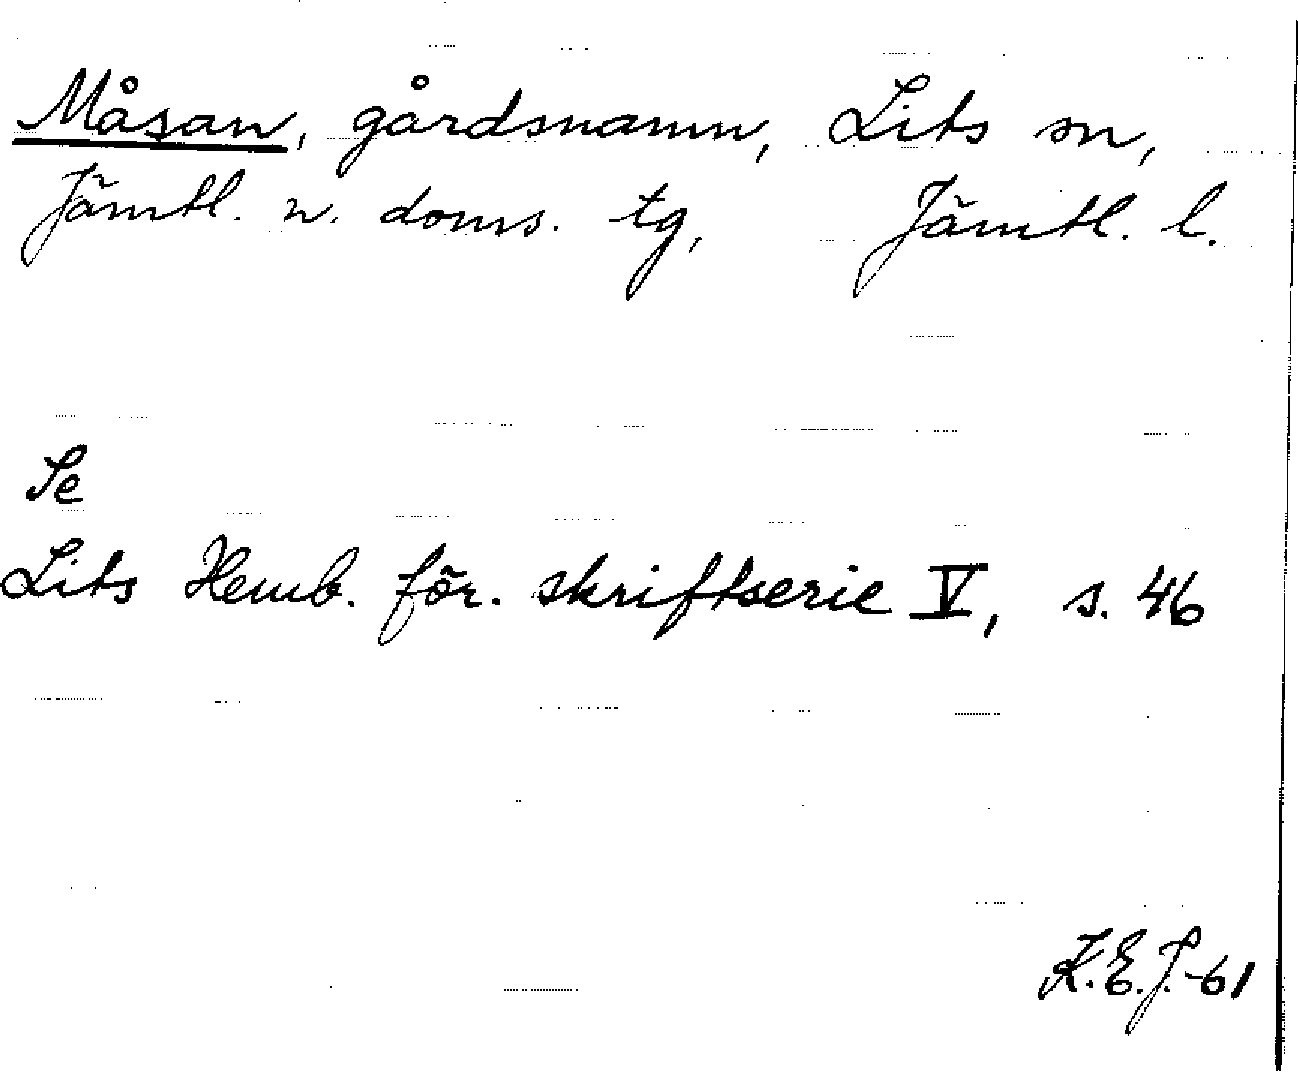 Måsan, gårdsnamn, Lits sn,
Jämtl. n. doms. tg, Jämtl. l.
Se
Lits Hemb. för. skriftserie V, s. 46
K.E.J.-61